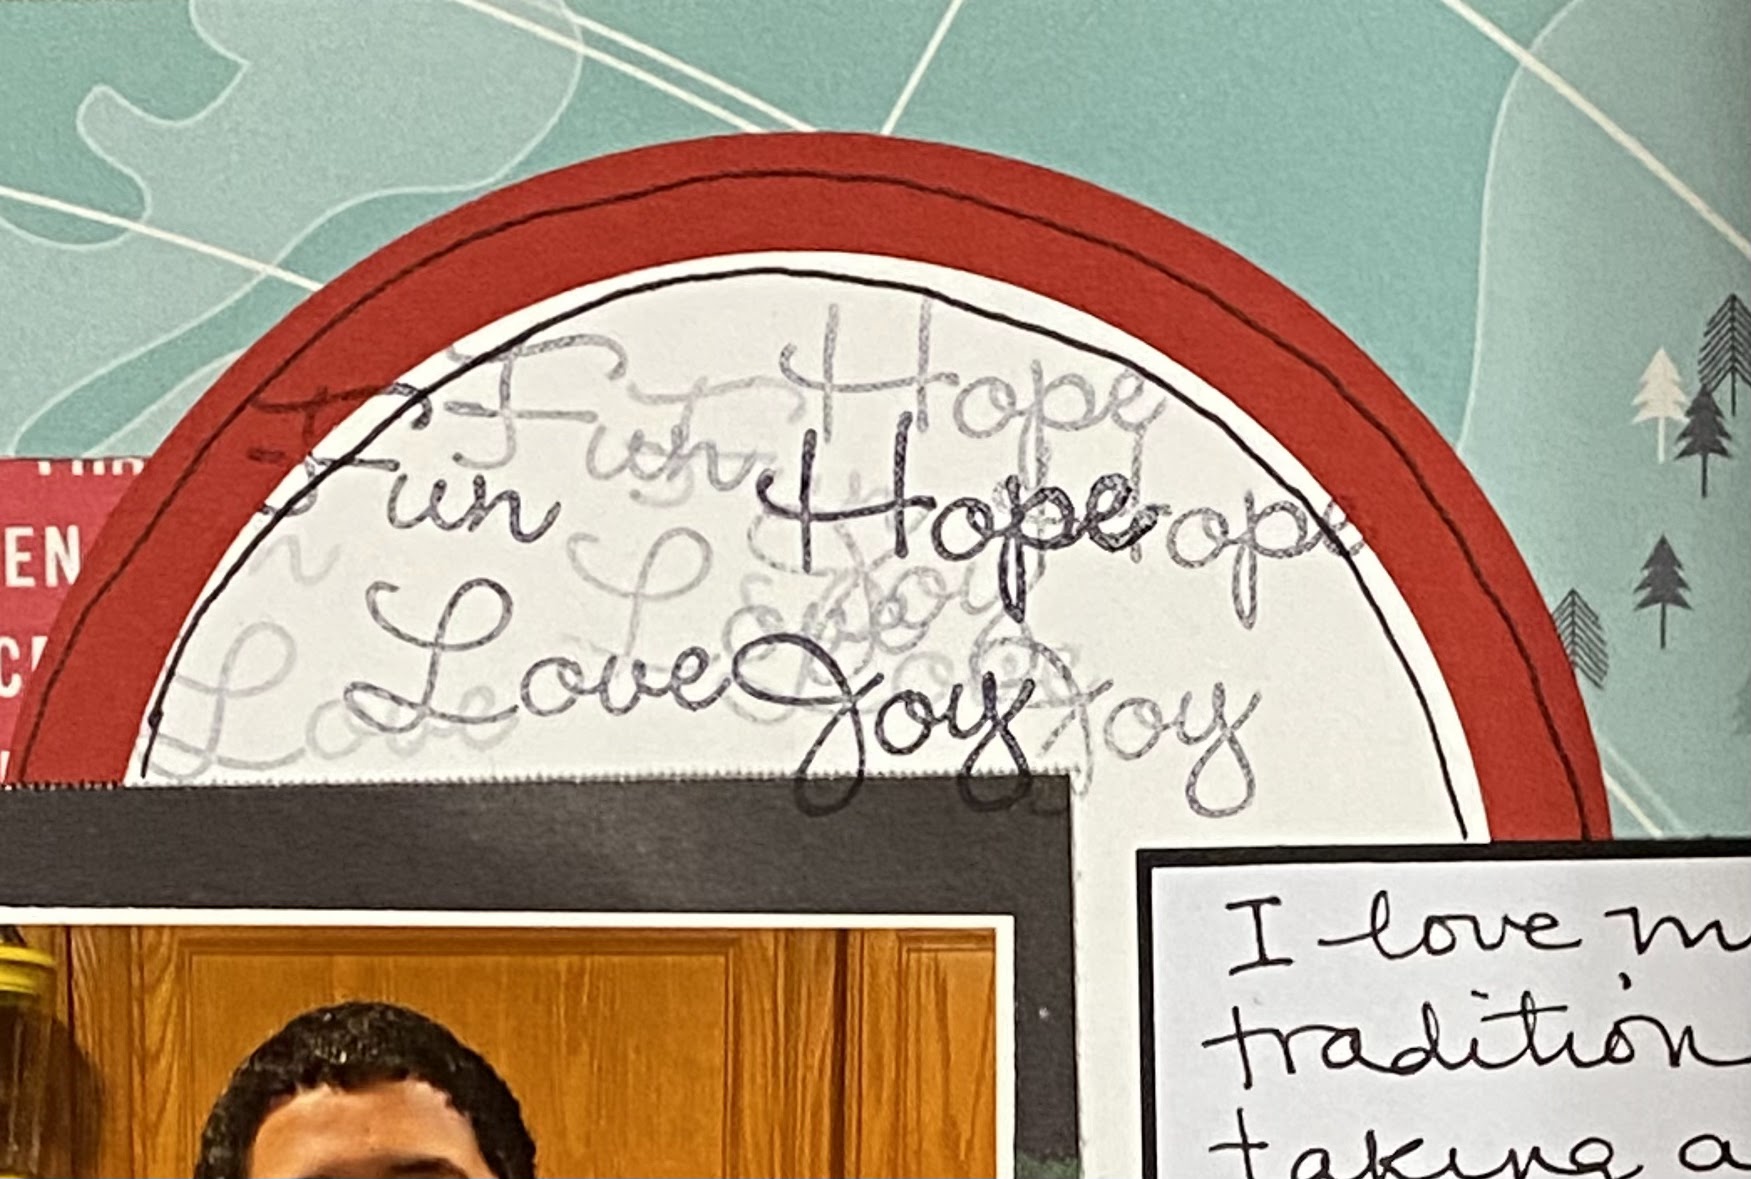 Hope
Fun
Fun Hope ope
Love Joy Joy
Love
EN
I love m
tradition
taking a